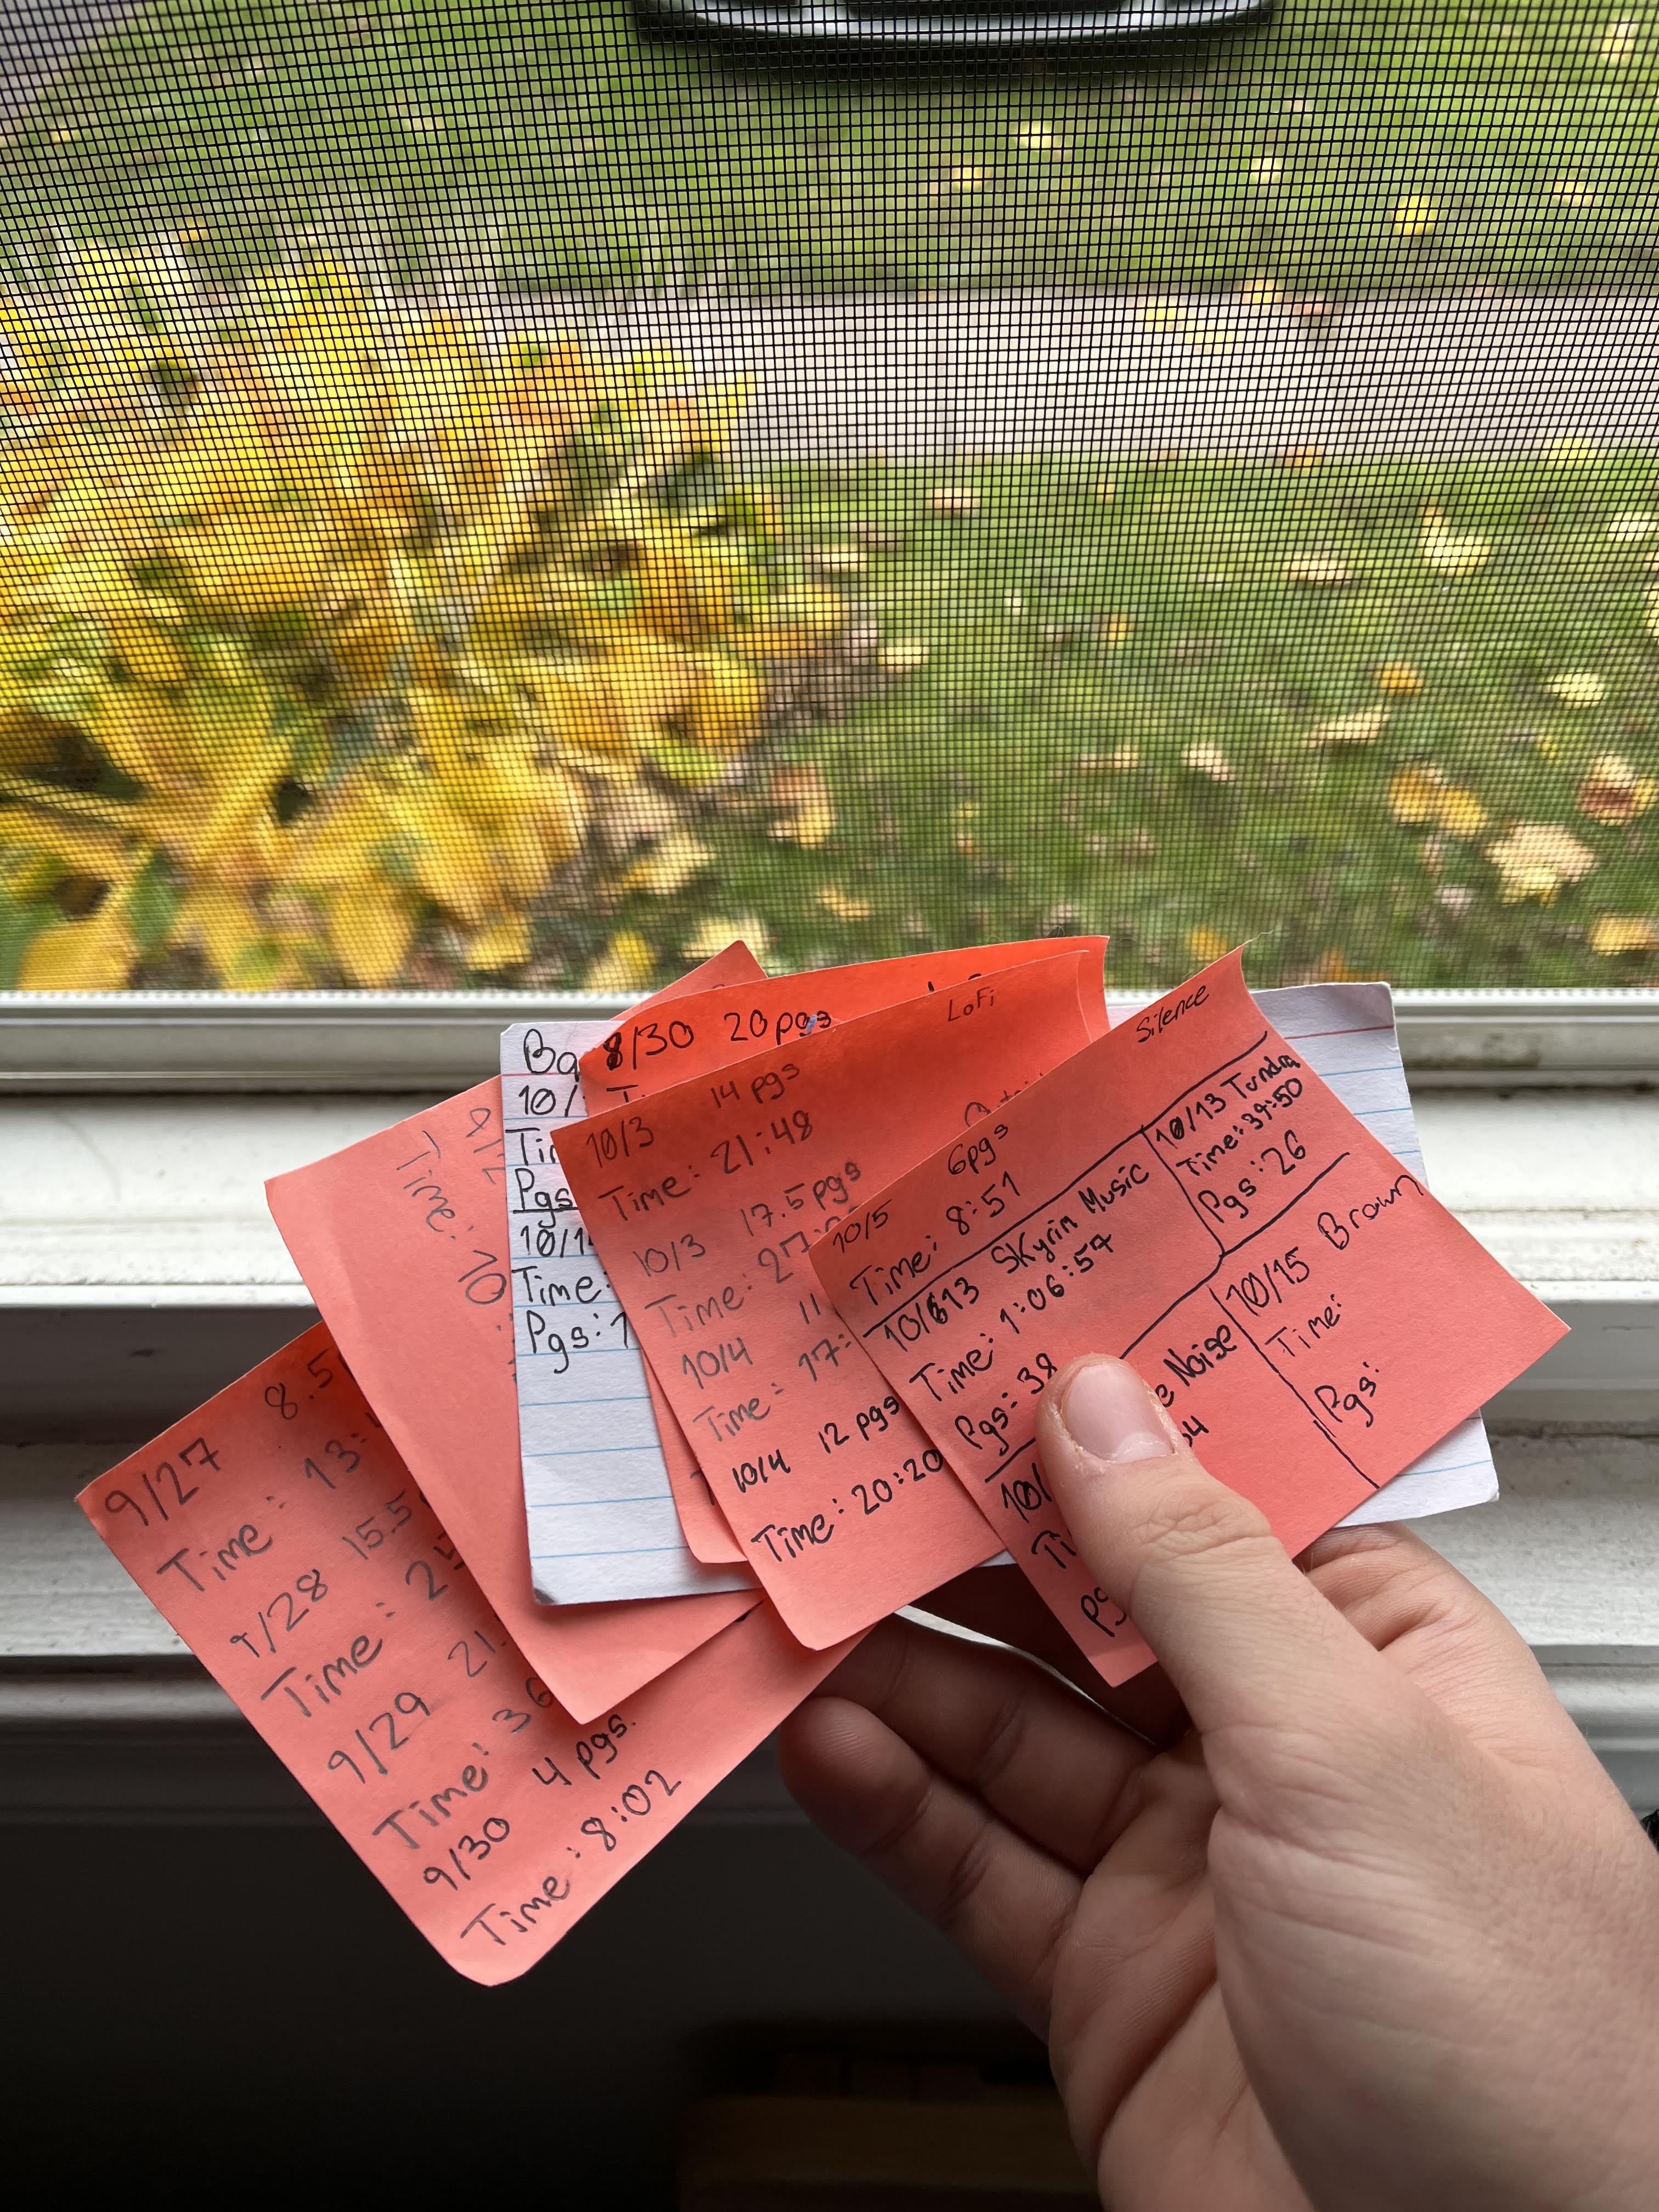 9/27 8.5
Time: 13:
9/28 15.5
Time: 25
9/29 21.
Time: 36
9/30 4 pgs.
Time: 8:02
9/2
Time: 10
10/
Pgs
10/1
Time:
Pgs: 1
8/30 20pgs
LoFi
10/3 14 pgs
Time: 21:48
10/3 17.5pgs
Time: 27:
10/4 11
Time: 17:
10/4 12 pgs
Time: 20:20
Silence
10/5 6pgs
Time: 8:51
10/13 Skyrim Music
Time: 1:06:57
Pgs: 38
10/13 Tundra
Time: 39:50
Pgs: 26
10/
Noise
10/15 Brown
Time:
Pgs: